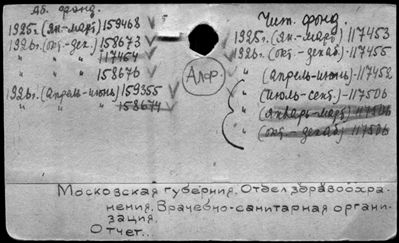 Аб. фонд.
1925г. (ян.-март) 159468
1926г. (окт.-дек.) 158673
" " 117454
" " 158676
1926г. (апрель-июнь) 159355
" " 158674
Алф.
Чит. фонд.
1925г. (ян.-март) 117453
1926г. (окт.-декаб.)-117455
" (апрель-июнь) 117452
" (июль-сент.)-117506
" (январь-март) 117506
" (окт.-декаб) 117506
Московская губерния. Отдел здравоохра-
нения. Врачебно-санитарная органи-
зация.
Отчет...